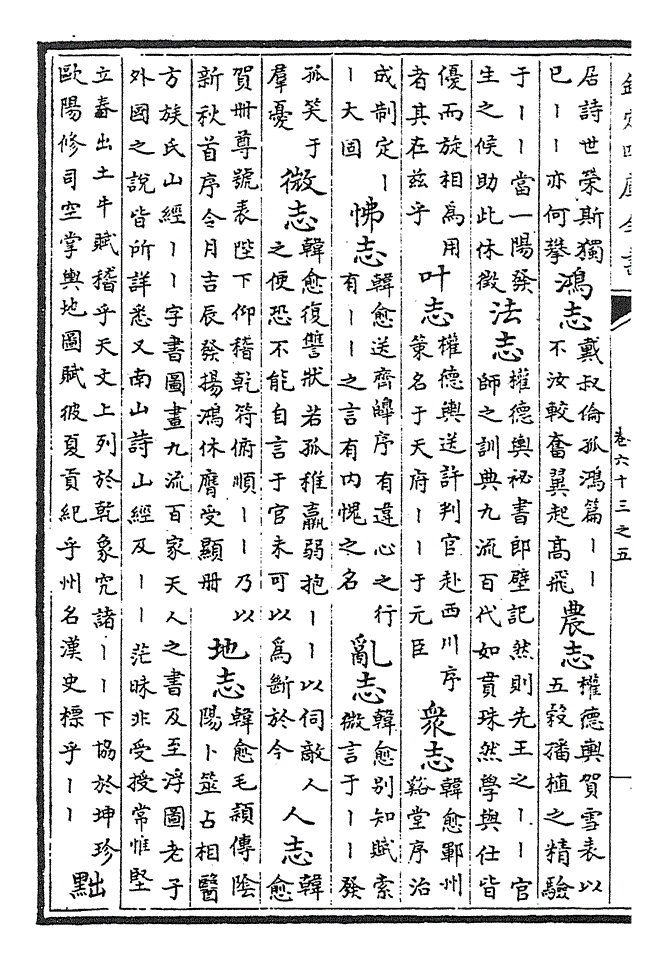 欽定四庫全書
卷六十三之五
居詩世榮斯獨
已丨丨亦何攀
鴻志
戴叔倫孤鴻篇丨丨
不汝較奮翼起高飛
農志
權德輿賀雪表以
五穀播植之精驗
于丨丨當一陽發
生之候助此休徵
法志
權德輿祕書郎壁記然則先王之丨丨官
師之訓典九流百代如貫珠然學與仕皆
優而旋相為用
者其在茲乎
叶志
權德輿送許判官赴西川序
策名于天府丨丨于元臣
衆志
韓愈鄆州
谿堂序治
成制定丨
丨大固
怫志
韓愈送齊皞序有違心之行
有丨丨之言有内愧之名
亂志
韓愈别知賦索
微言于丨丨發
孤笑于
羣憂
微志
韓愈復讐狀若孤稚羸弱抱丨丨以伺敵人
之便恐不能自言于官未可以為斷於今
人志
韓
愈
賀册尊號表陛下仰稽乾符俯順丨丨乃以
新秋首序令月吉辰發揚鴻休膺受顯册
地志
韓愈毛穎傳陰
陽卜筮占相醫
方族氏山經丨丨字書圖畫九流百家天人之書及至浮圖老子
外國之說皆所詳悉又南山詩山經及丨丨茫昧非受授常惟堅
立春出土牛賦稽乎天文上列於乾象究諸丨丨下協於坤珍
歐陽修司空掌輿地圖賦彼夏貢紀乎州名漢史標乎丨丨
黜